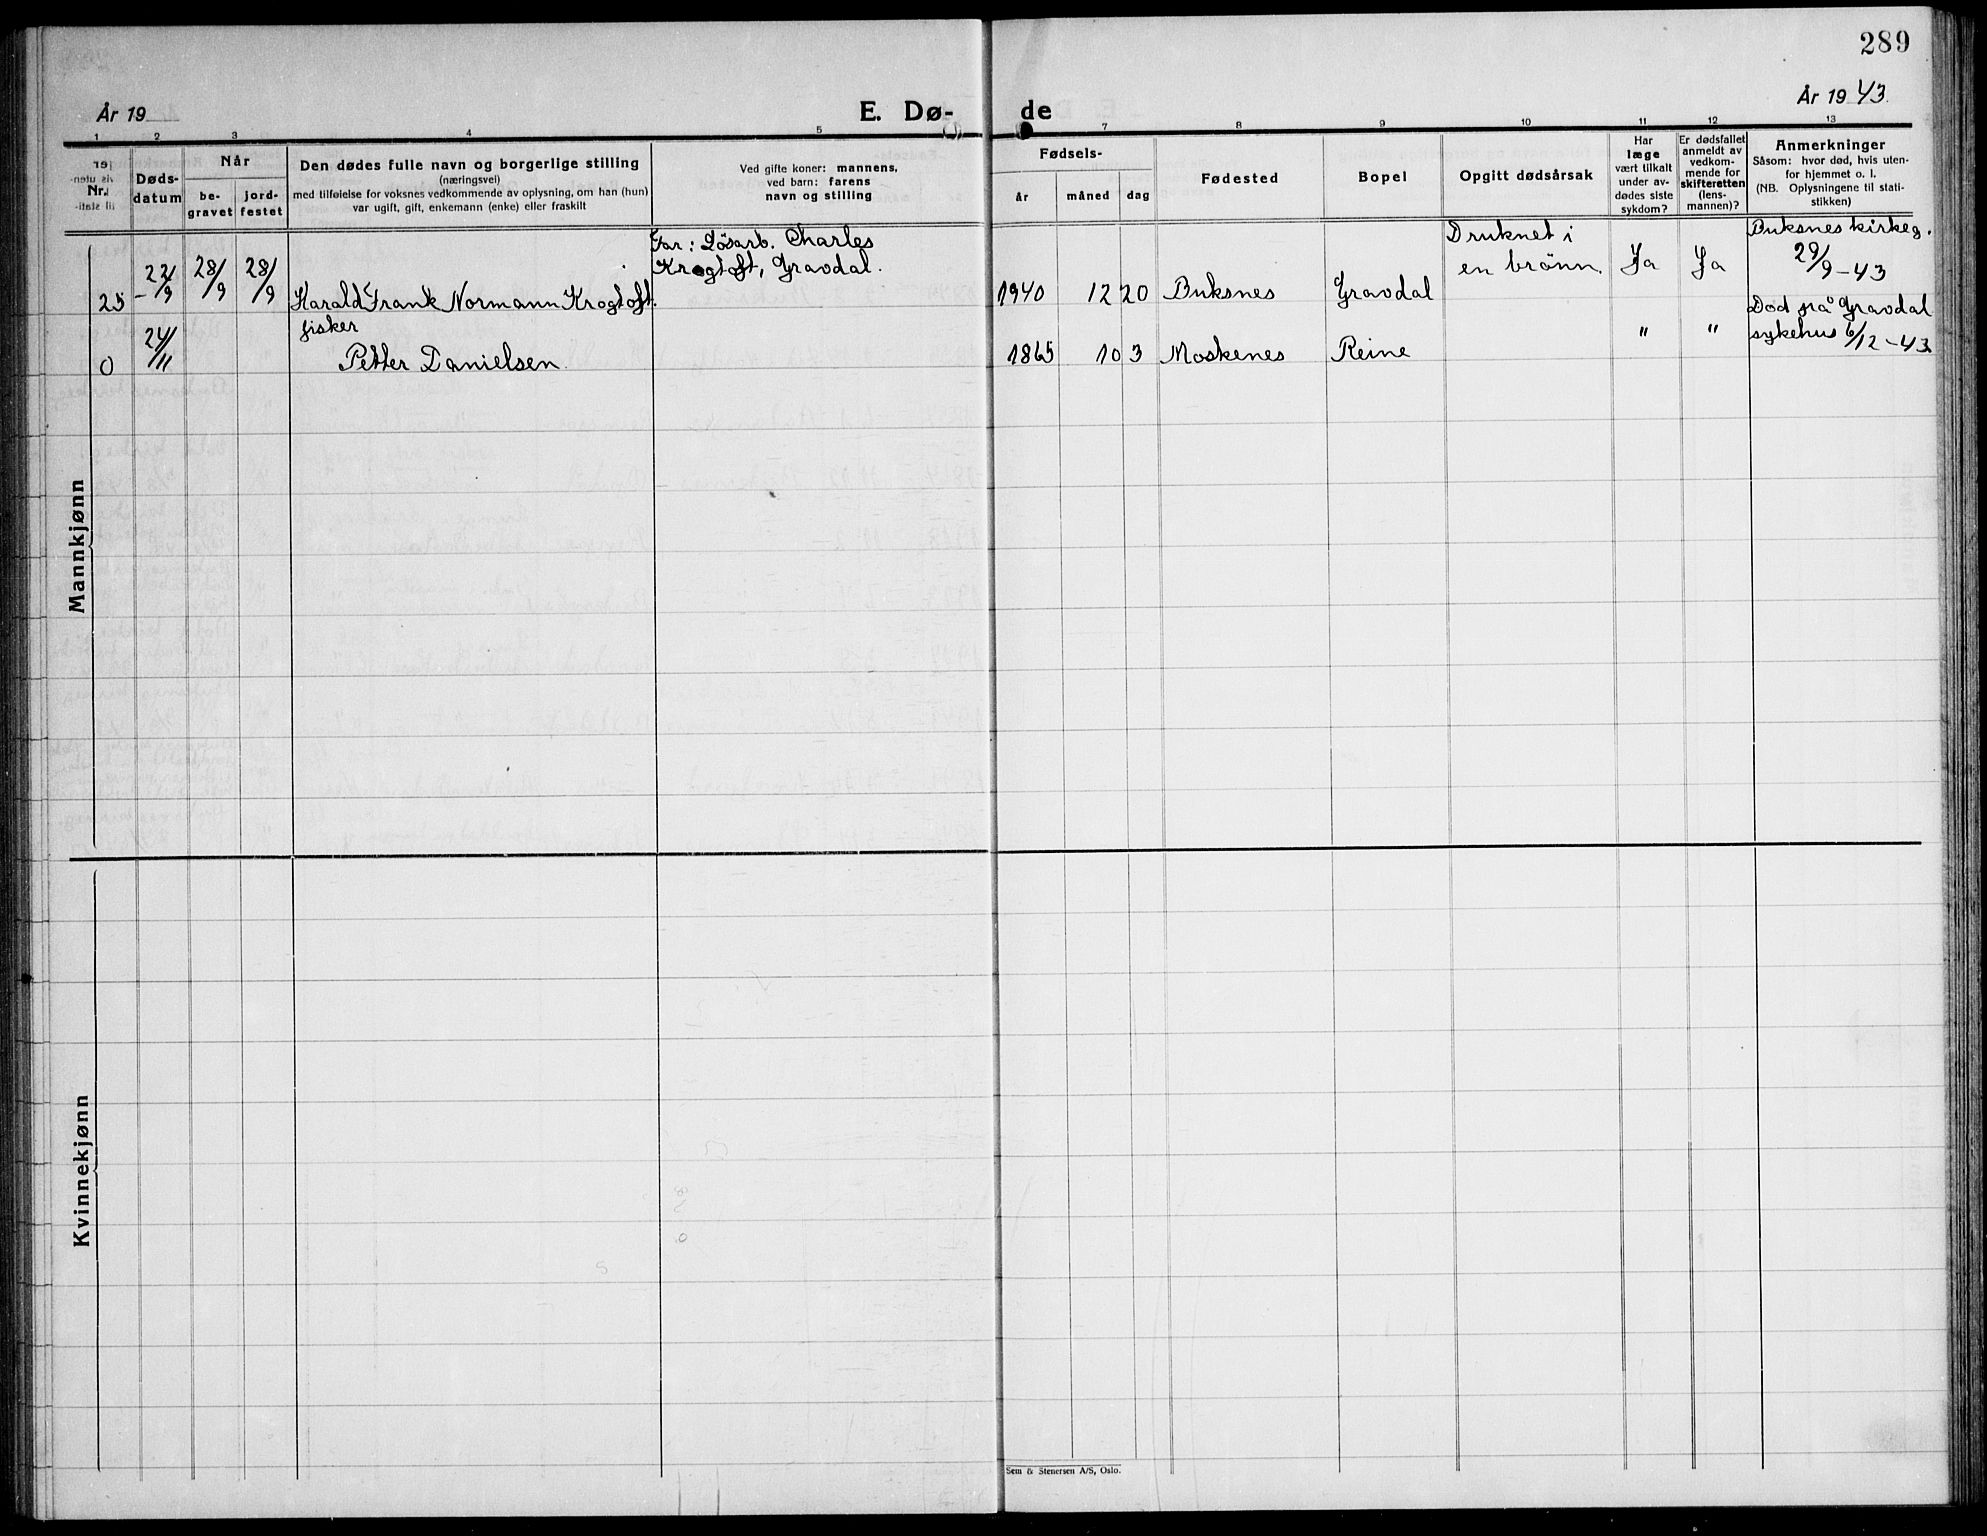 289
År 19
E. Dø-
de
År 1943
1 2 3 4 5 7 8 9 10 11 12 13
Nr.
Døds-
datum
Når
be-
gravet
jord-
festet
Den dødes fulle navn og borgerlige stilling
(næringsvei)
med tilføielse for voksnes vedkommende av oplysning, om han (hun)
var ugift, gift, enkemann (enke) eller fraskilt
Ved gifte koner: mannens,
ved barn: farens
navn og stilling
Fødsels-
år
måned
dag
Fødested
Bopel
Opgitt dødsårsak
Har
læge
vært tilkalt
under av-
dødes siste
sykdom?
Er dødsfallet
anmeldt av
vedkom-
mende for
skifteretten
(lens-
mannen)?
Anmerkninger
Såsom: hvor død, hvis uten-
for hjemmet o. l.
(NB. Oplysningene til stati-
stikken)
Mannkjønn
25
22/9
28/9
28/9
Harald Frank Normann Krogtoft.
Far: Løsarb. Charles
Krogtoft, Gravdal.
1940 12 20 Buksnes Gravdal
Druknet i
en brønn.
Ja
Ja
Buksnes kirkeg.
29/9-43
0
24/11
fisker
Petter Danielsen.
1865 10 3 Moskenes Reine
" "
Død på Gravdal
sykehus 6/12-43
Kvinnekjønn
Sem & Stenersen A/S, Oslo.